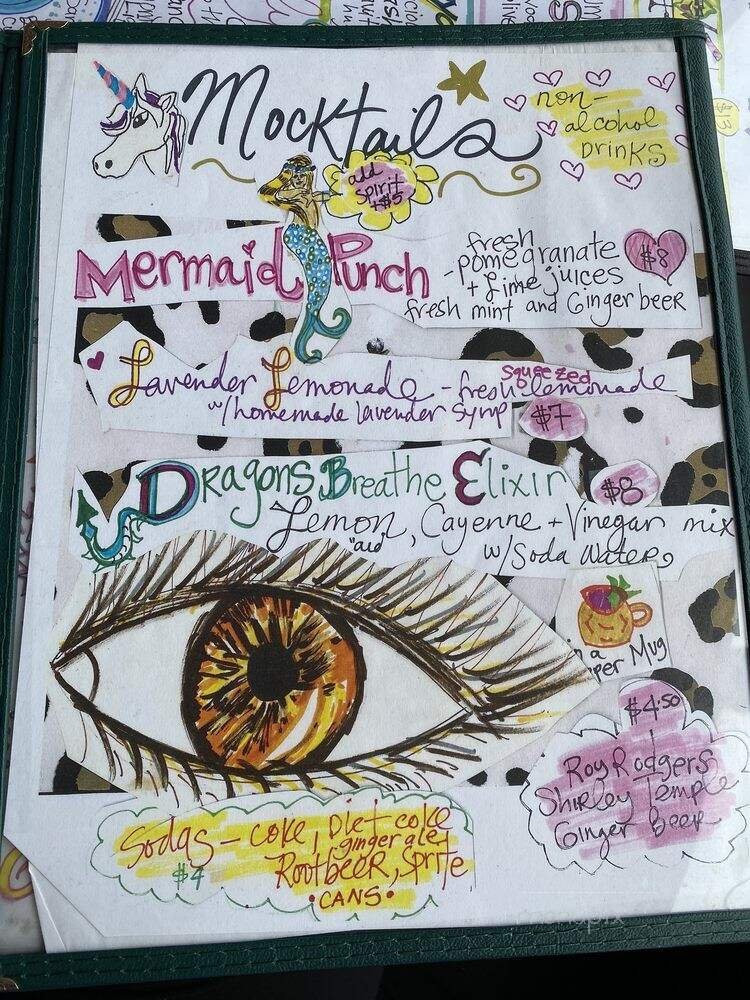 Mocktails
non-
alcohol
DRINKS
add
spirit
+$5
Mermaid Punch
fresh
-pomegranate
+ Lime juices
fresh mint and Ginger beer
$8
Lavender Lemonade - fresh squeezed lemonade
w/homemade lavender syrup
$7
Dragons Breathe Elixir
$8
Lemon, Cayenne + Vinegar mix
"aid
w/Soda Water
a
Mug
$4.50
Roy Rodgers
Shirley Temple
Ginger Beer
Sodas - coke, Diet coke
ginger ale
$4
Rootbeer, Sprite
•CANS•
$13